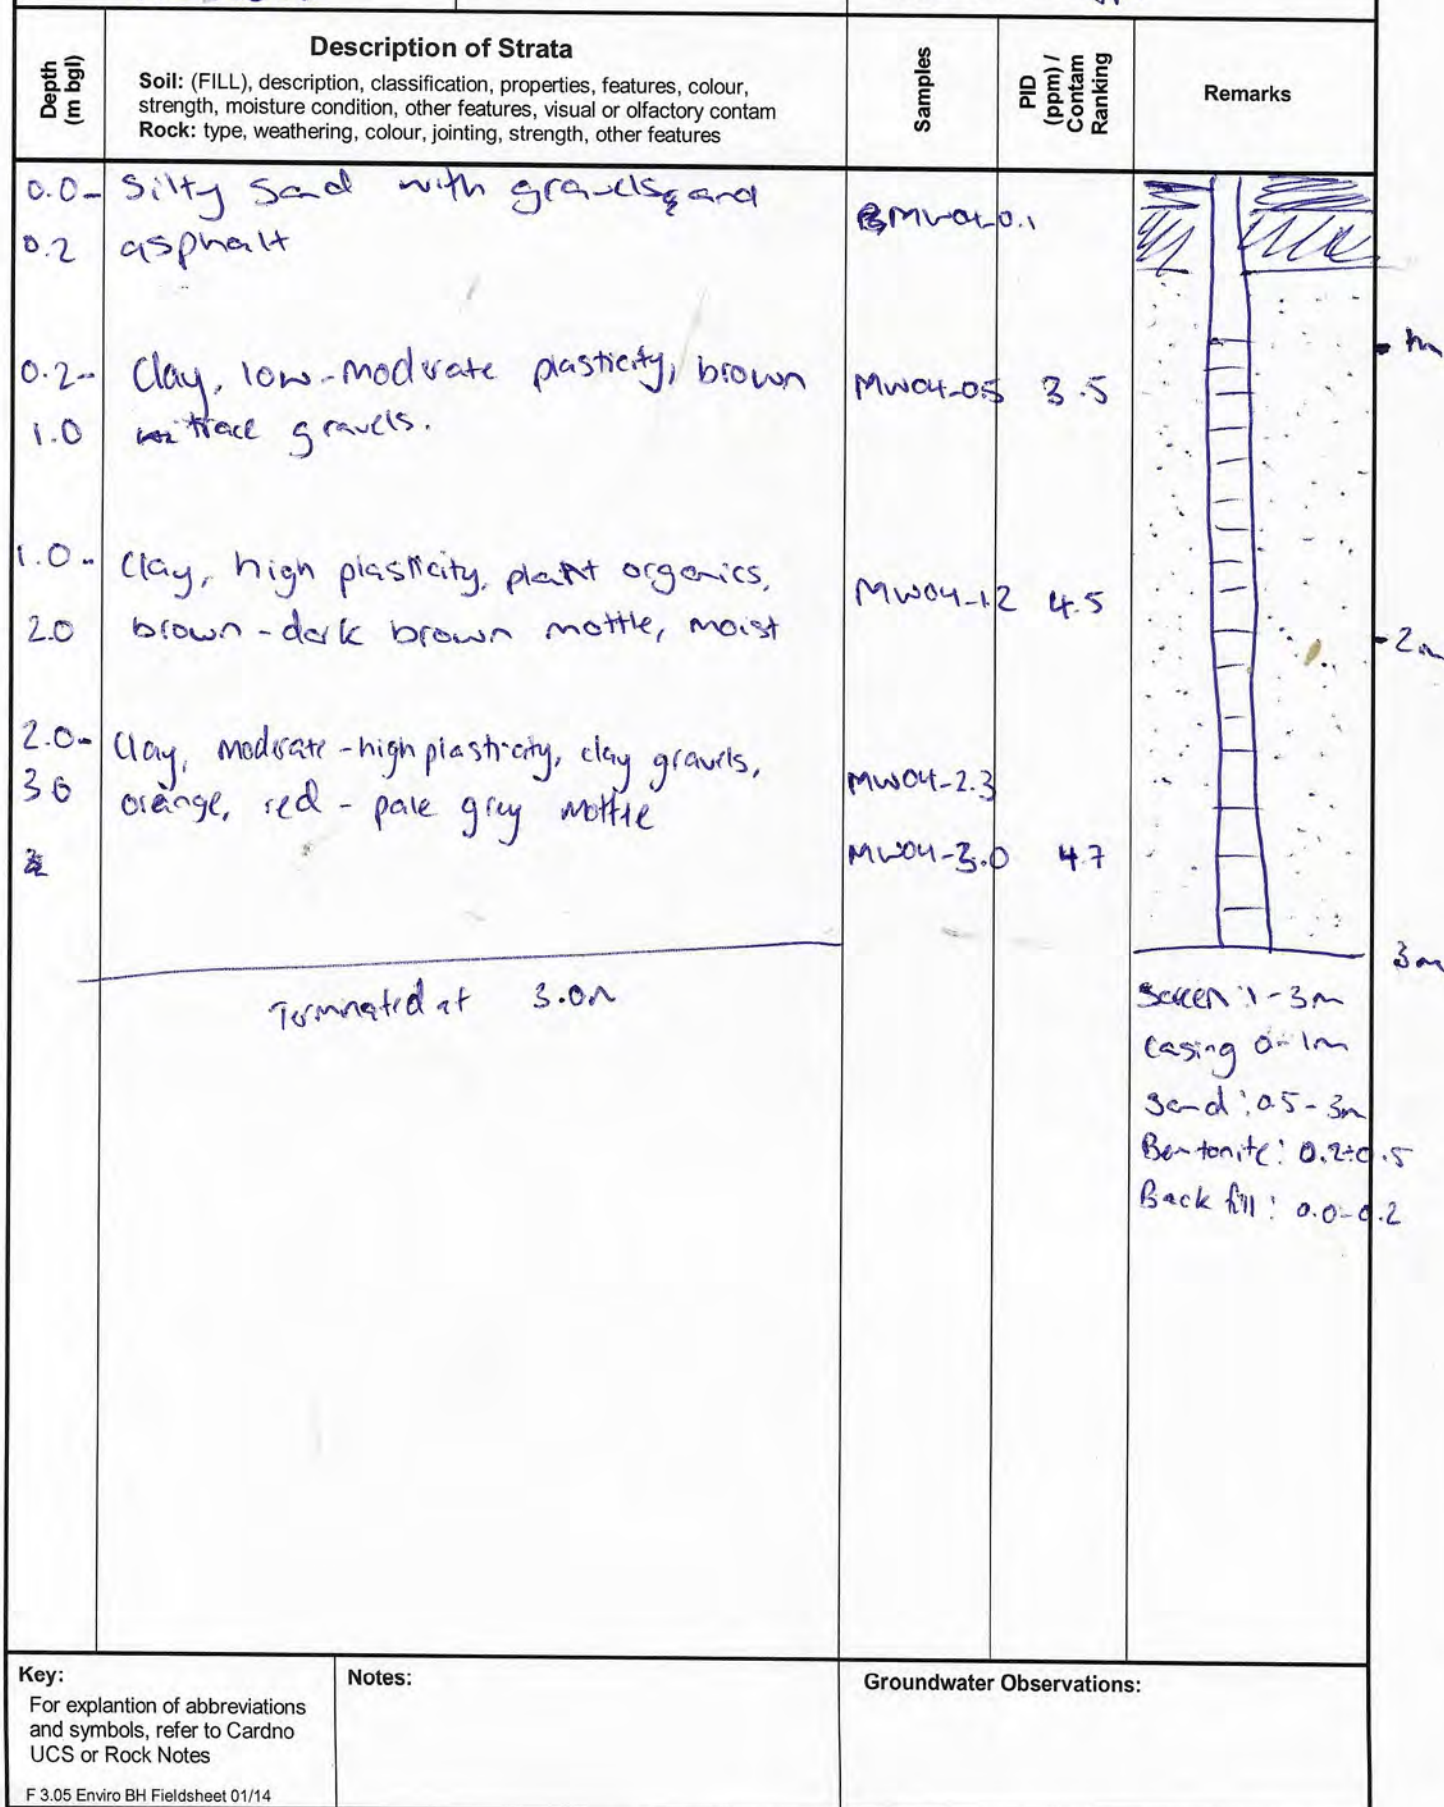 Depth
(m bgl)
Description of Strata
Soil: (FILL), description, classification, properties, features, colour,
strength, moisture condition, other features, visual or olfactory contam
Rock: type, weathering, colour, jointing, strength, other features
Samples
PID
(ppm) /
Contam
Ranking
Remarks
0.0- Silty Sand with gravels, and MW04-0.1
0.2 asphalt
1m
0.2- Clay, low-moderate plasticity, brown MW04-0.5 3.5
1.0 trace gravels.
1.0- Clay, high plasticity, plant organics, MW04-1.2 4.5
2.0 brown-dark brown mottle, moist
2m
2.0- Clay, moderate-high plasticity, clay gravels, MW04-2.3
3.0 orange, red - pale grey mottle
MW04-3.0 4.7
3m
Terminated at 3.0m
Screen: 1-3m
Casing 0-1m
Sand: 0.5-3m
Bentonite: 0.2-0.5
Back fill: 0.0-0.2
Key:
For explantion of abbreviations
and symbols, refer to Cardno
UCS or Rock Notes
F 3.05 Enviro BH Fieldsheet 01/14
Notes:
Groundwater Observations: